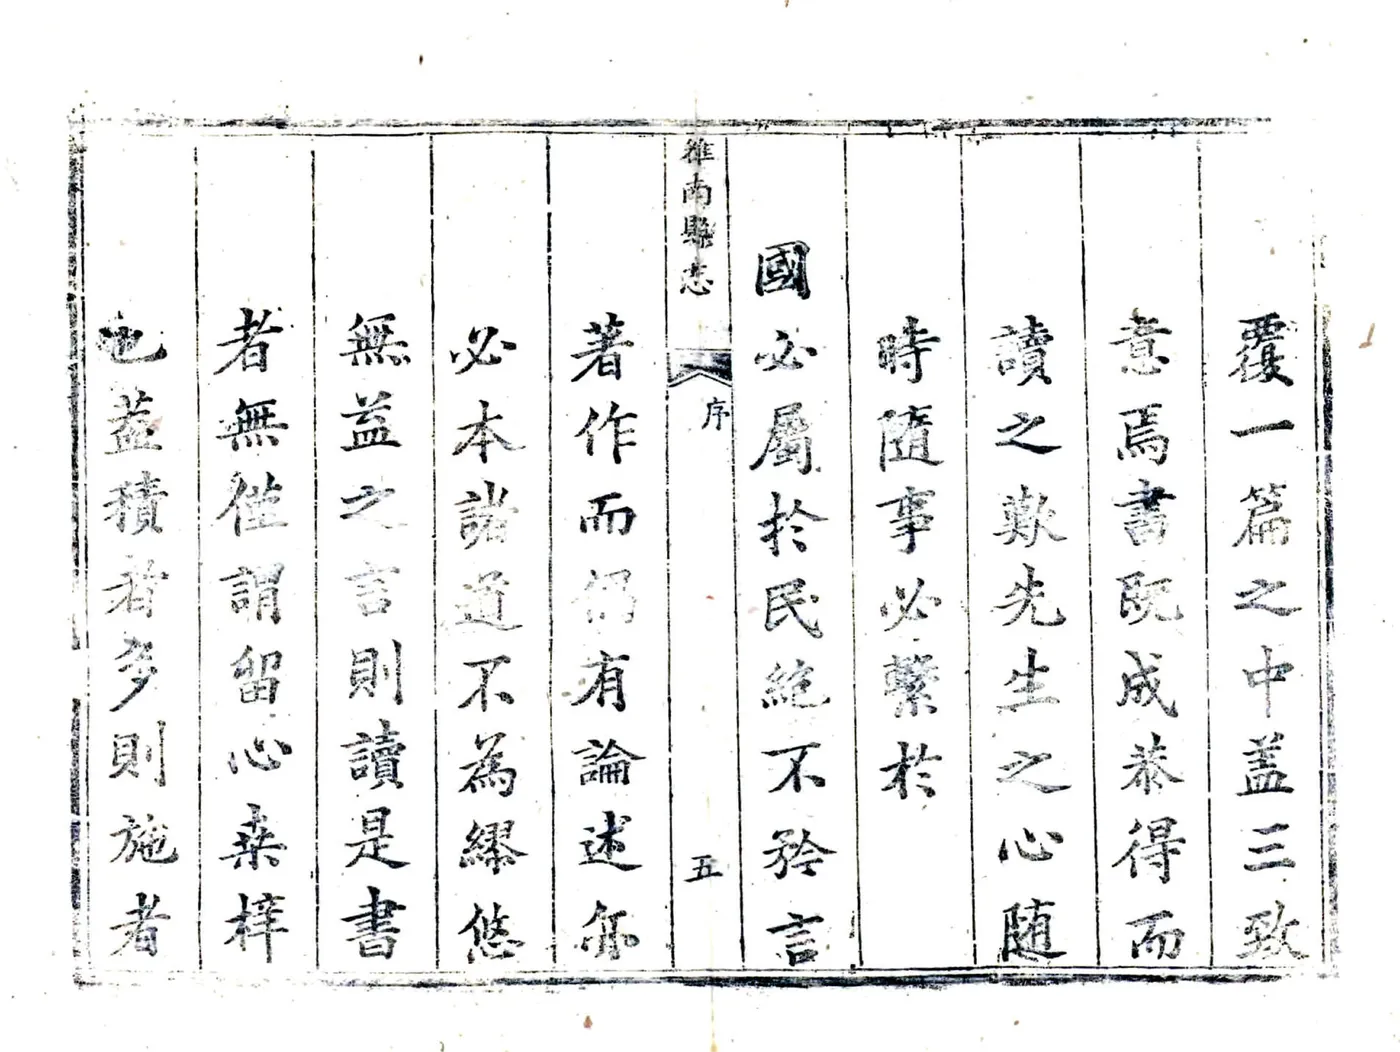 覆一篇之中盖三致
意焉書既成恭得而
讀之歎先生之心随
時隨事必繫於
國必屬於民絶不矜言
雒南縣志
序
五
著作而仍有論述亦
必本諸道不為繆悠
無益之言則讀是書
者無徒謂留心桑梓
也葢積者多則施者